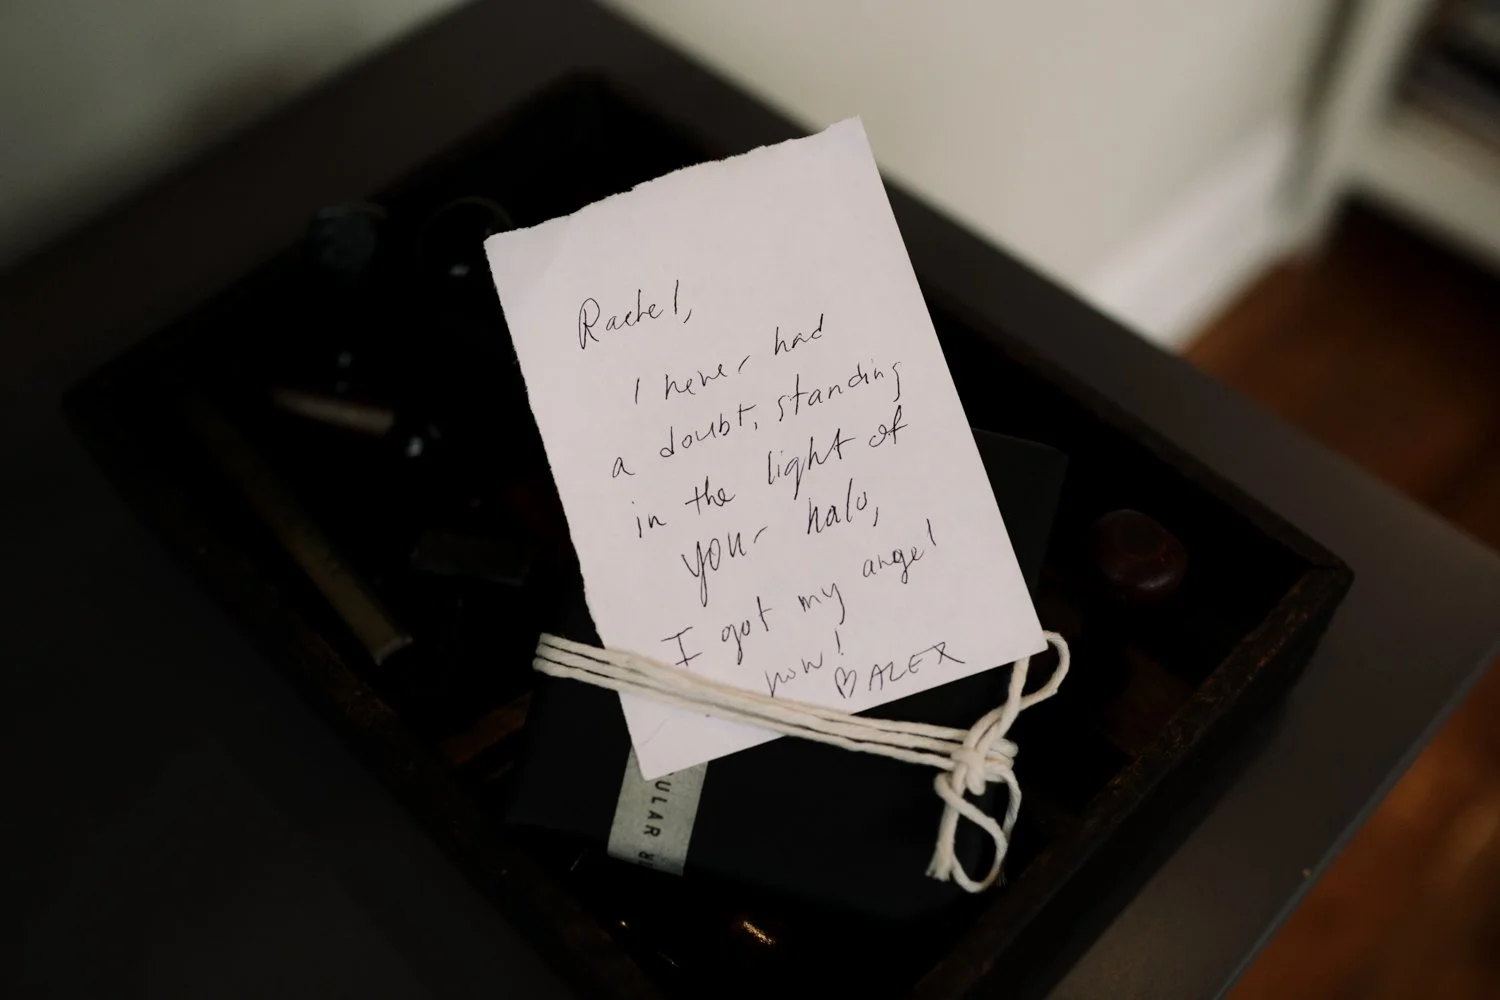 Rachel,
I never had
a doubt, standing
in the light of
your halo,
I got my angel
now!
♡ ALEX
ULAR